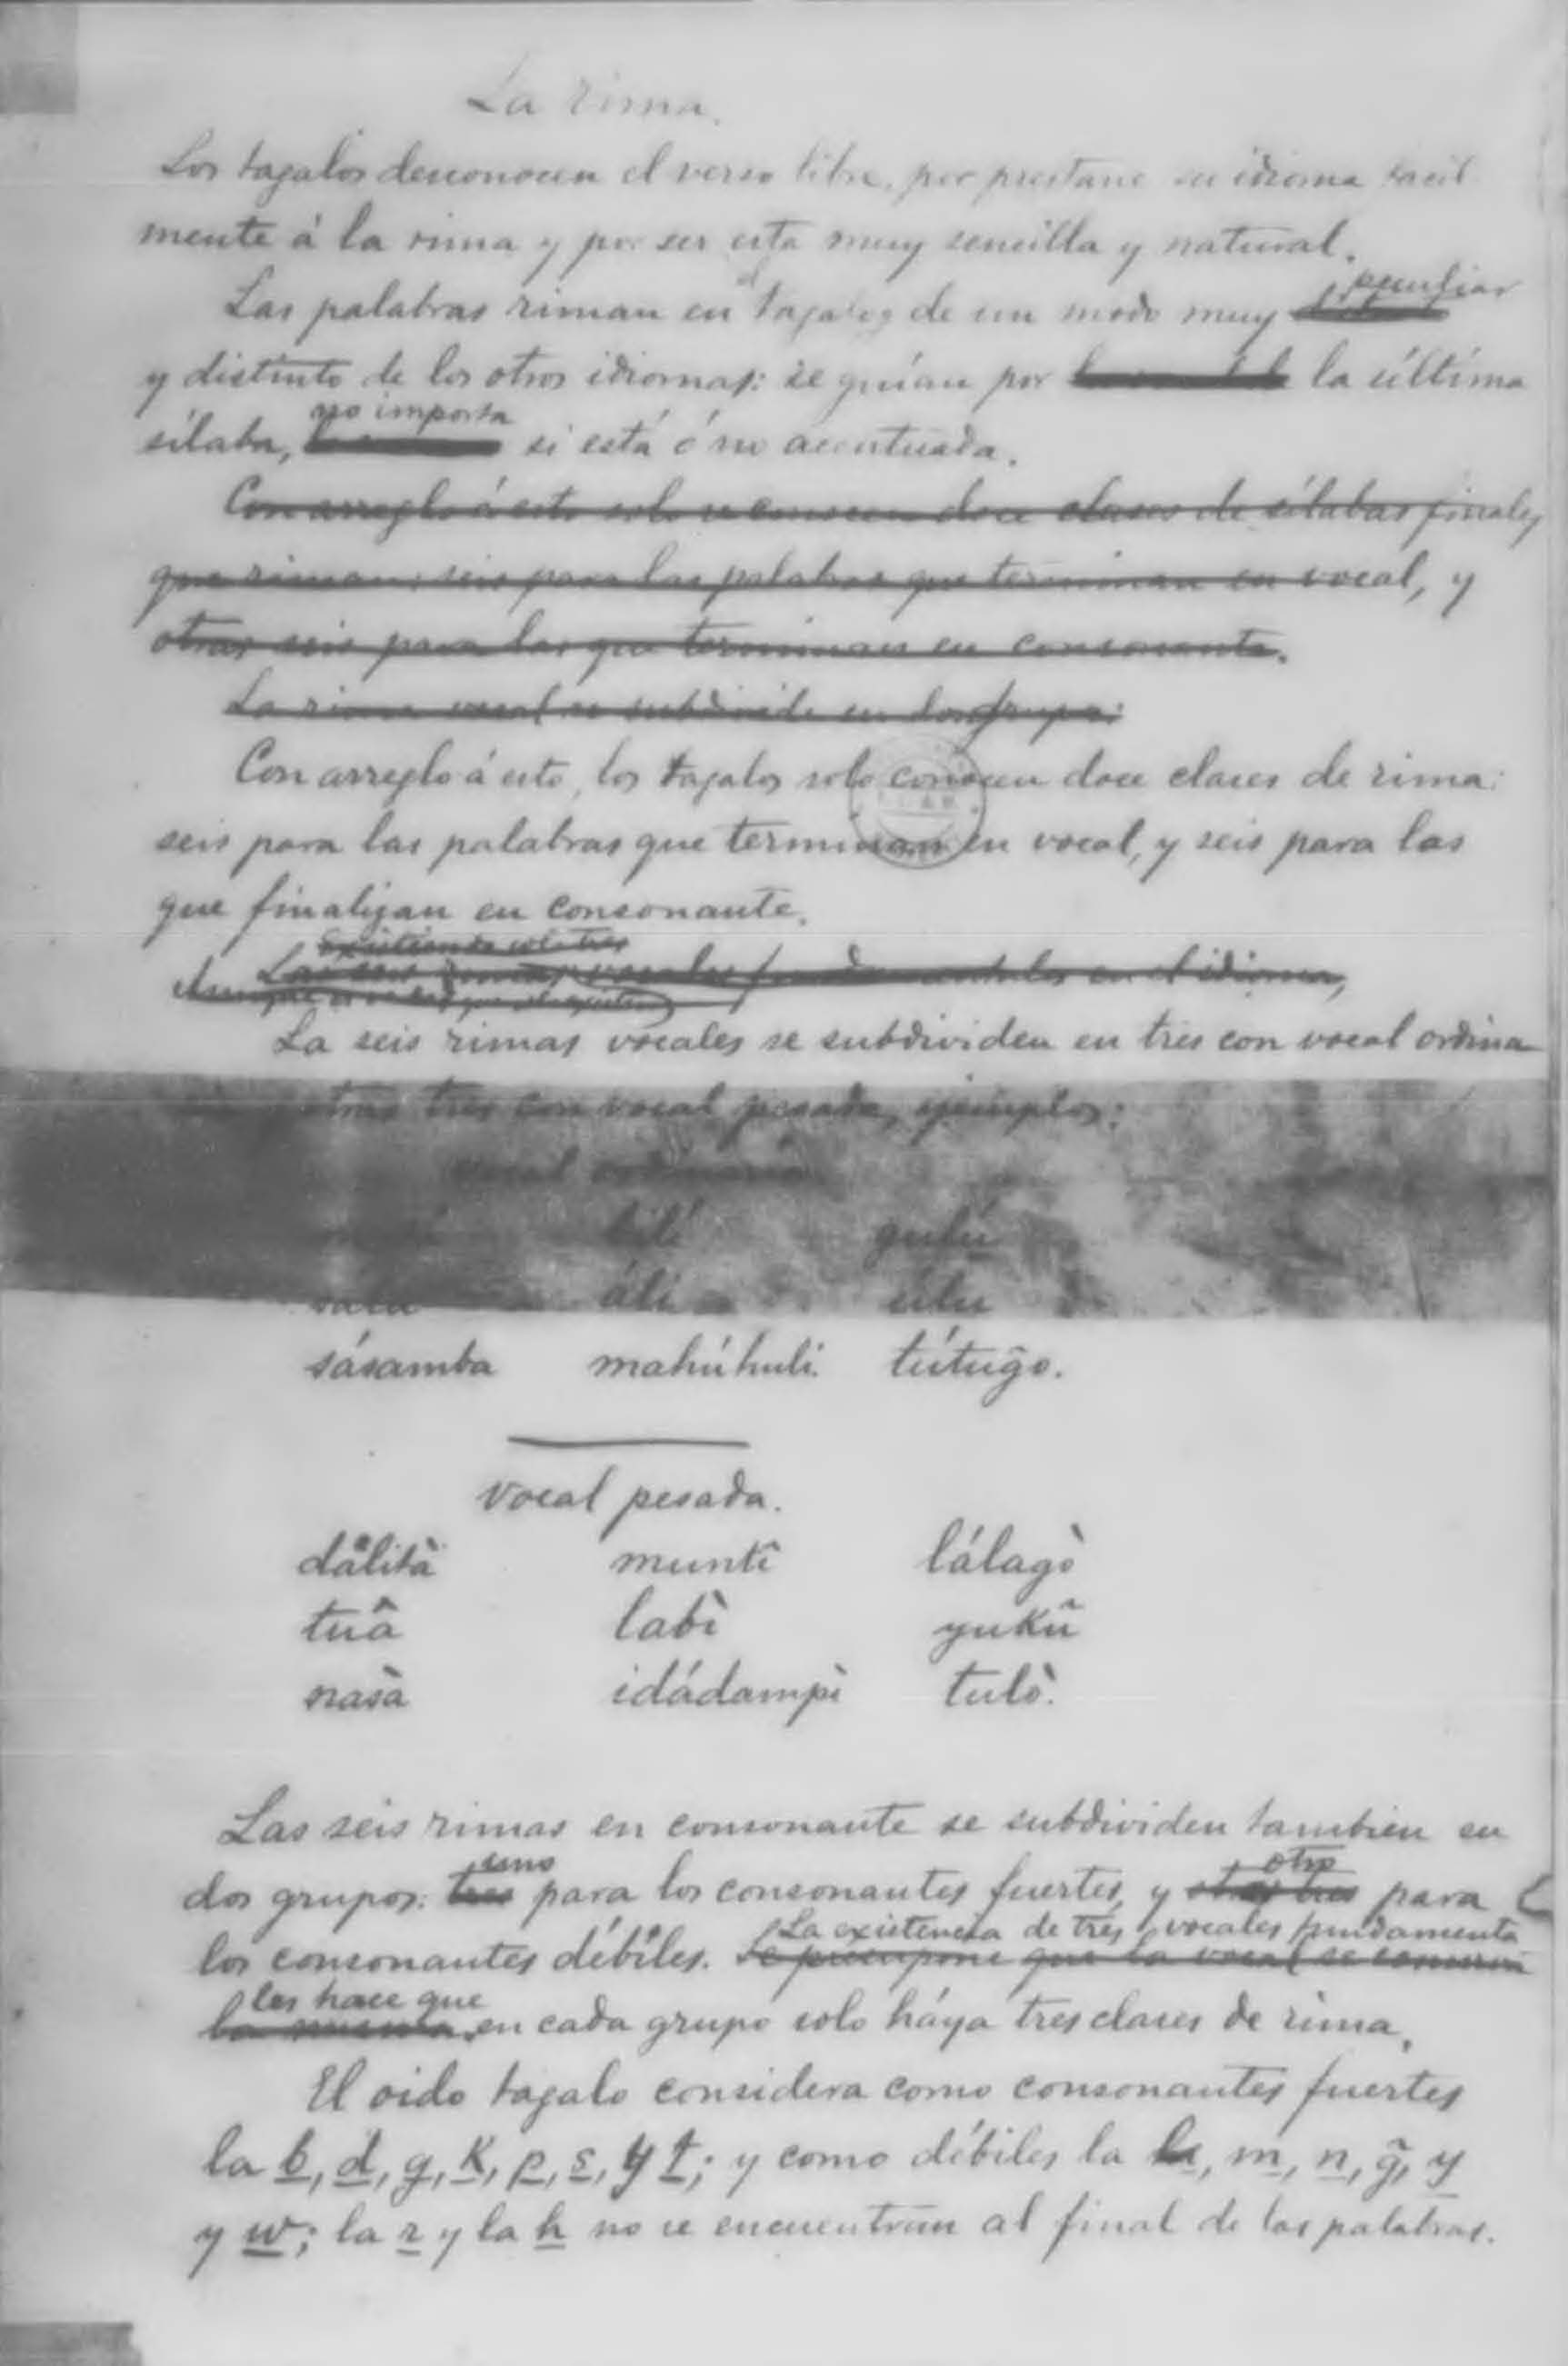 La rima.
Los tagalos desconocen el verso libre, por prestarse su idioma facil
mente á la rima y por ser esta muy sencilla y natural.
peculiar
Las palabras riman en tagalog de un modo muy
y distinto de los otros idiomas: se guían por la última
no importa
sílaba, si está ó no acentuada.
Con arreglo á esto solo se conocen doce clases de sílabas finales
que riman: seis para las palabras que terminan en vocal, y
otras seis para las que terminan en consonante.
La rima vocal se subdivide en dos grupos:
Con arreglo á esto, los tagalos solo conocen doce clases de rima:
seis para las palabras que terminan en vocal, y seis para las
que finalizan en consonante.
existiendo solo tres
Las seis rimas vocales fundamentales en el idioma,
Aunque
La seis rimas vocales se subdividen en tres con vocal ordina
otras tres con vocal pesada, ejemplos:
vocal ordinaria
bilí gulú
áli úlu
sásamba mahúhuli. tútug̃o.
vocal pesada.
dálità muntî lálagò
tuâ labì yukû
nasà idádampì tulò.
Las seis rimas en consonante se subdividen tambien en
uno otro
dos grupos: tres para los consonantes fuertes, y otras tres para
La existencia de tres vocales fundamenta
los consonantes débiles. Se presupone que la vocal se conserva
les hace que
la misma, en cada grupo solo háya tres clases de rima.
El oido tagalo considera como consonantes fuertes
la b, d, g, k, p, s, y t; y como débiles la l, m, n, g̃, y
y w; la r y la h no se encuentran al final de las palabras.